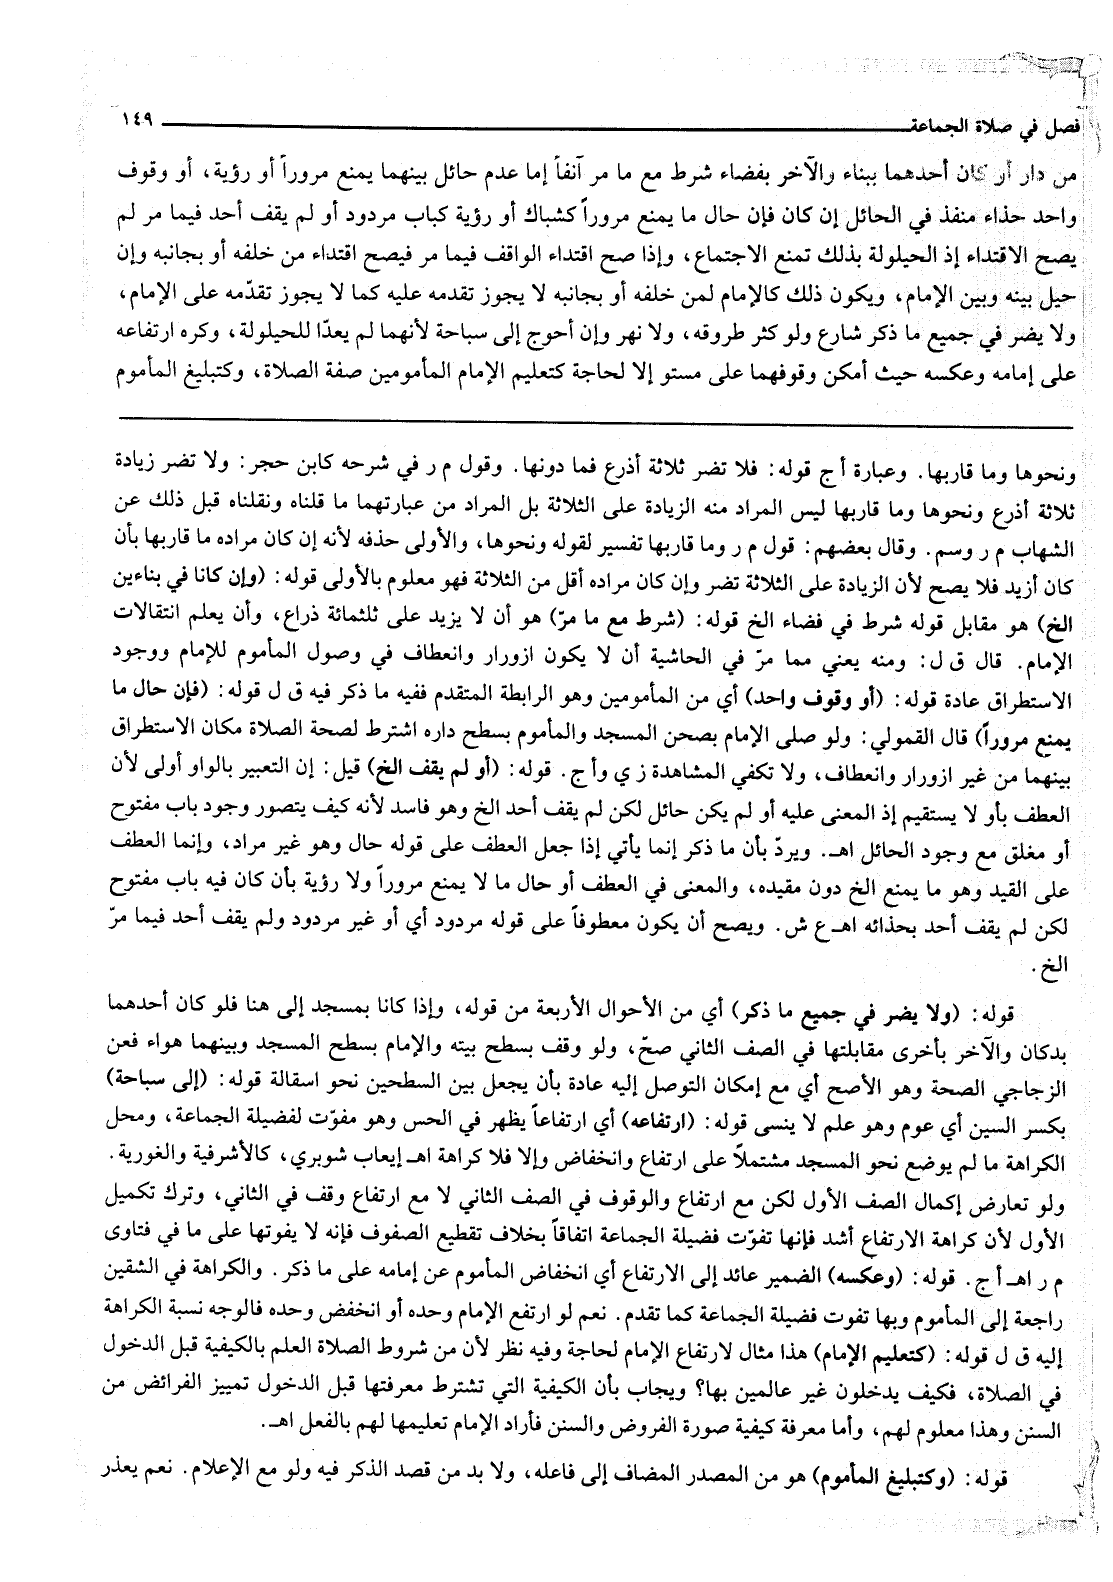 فصل في صلاة الجماعة ١٤٩
من دار أو كان أحدهما ببناء والآخر بفضاء شرط مع ما مر آنفاً إما عدم حائل بينهما يمنع مروراً أو رؤية، أو وقوف
واحد حذاء منفذ في الحائل إن كان فإن حال ما يمنع مروراً كشباك أو رؤية كباب مردود أو لم يقف أحد فيما مر لم
يصح الاقتداء إذ الحيلولة بذلك تمنع الاجتماع، وإذا صح اقتداء الواقف فيما مر فيصح اقتداء من خلفه أو بجانبه وإن
حيل بينه وبين الإمام، ويكون ذلك كالإمام لمن خلفه أو بجانبه لا يجوز تقدمه عليه كما لا يجوز تقدّمه على الإمام،
ولا يضر في جميع ما ذكر شارع ولو كثر طروقه، ولا نهر وإن أحوج إلى سباحة لأنهما لم يعدّا للحيلولة، وكره ارتفاعه
على إمامه وعكسه حيث أمكن وقوفهما على مستو إلا لحاجة كتعليم الإمام المأمومين صفة الصلاة، وكتبليغ المأموم
ونحوها وما قاربها. وعبارة أ ج قوله: فلا تضر ثلاثة أذرع فما دونها. وقول م ر في شرحه كابن حجر: ولا تضر زيادة
ثلاثة أذرع ونحوها وما قاربها ليس المراد منه الزيادة على الثلاثة بل المراد من عبارتهما ما قلناه ونقلناه قبل ذلك عن
الشهاب م ر وسم. وقال بعضهم: قول م ر وما قاربها تفسير لقوله ونحوها، والأولى حذفه لأنه إن كان مراده ما قاربها بأن
كان أزيد فلا يصح لأن الزيادة على الثلاثة تضر وإن كان مراده أقل من الثلاثة فهو معلوم بالأولى قوله: (وإن كانا في بناءين
الخ) هو مقابل قوله شرط في فضاء الخ قوله: (شرط مع ما مرّ) هو أن لا يزيد على ثلثمائة ذراع، وأن يعلم انتقالات
الإمام. قال ق ل: ومنه يعني مما مرّ في الحاشية أن لا يكون ازورار وانعطاف في وصول المأموم للإمام ووجود
الاستطراق عادة قوله: (أو وقوف واحد) أي من المأمومين وهو الرابطة المتقدم ففيه ما ذكر فيه ق ل قوله: (فإن حال ما
يمنع مروراً) قال القمولي: ولو صلى الإمام بصحن المسجد والمأموم بسطح داره اشترط لصحة الصلاة مكان الاستطراق
بينهما من غير ازورار وانعطاف، ولا تكفي المشاهدة ز ي وأ ج. قوله: (أو لم يقف الخ) قيل: إن التعبير بالواو أولى لأن
العطف بأو لا يستقيم إذ المعنى عليه أو لم يكن حائل لكن لم يقف أحد الخ وهو فاسد لأنه كيف يتصور وجود باب مفتوح
أو مغلق مع وجود الحائل اهـ. ويردّ بأن ما ذكر إنما يأتي إذا جعل العطف على قوله حال وهو غير مراد، وإنما العطف
على القيد وهو ما يمنع الخ دون مقيده، والمعنى في العطف أو حال ما لا يمنع مروراً ولا رؤية بأن كان فيه باب مفتوح
لكن لم يقف أحد بحذائه اهـ ع ش. ويصح أن يكون معطوفاً على قوله مردود أي أو غير مردود ولم يقف أحد فيما مرّ
الخ.
قوله: (ولا يضر في جميع ما ذكر) أي من الأحوال الأربعة من قوله، وإذا كانا بمسجد إلى هنا فلو كان أحدهما
بدكان والآخر بأخرى مقابلتها في الصف الثاني صحّ، ولو وقف بسطح بيته والإمام بسطح المسجد وبينهما هواء فعن
الزجاجي الصحة وهو الأصح أي مع إمكان التوصل إليه عادة بأن يجعل بين السطحين نحو اسقالة قوله: (إلى سباحة)
بكسر السين أي عوم وهو علم لا ينسى قوله: (ارتفاعه) أي ارتفاعاً يظهر في الحس وهو مفوّت لفضيلة الجماعة، ومحل
الكراهة ما لم يوضع نحو المسجد مشتملاً على ارتفاع وانخفاض وإلا فلا كراهة اهـ إيعاب شوبري، كالأشرفية والغورية.
ولو تعارض إكمال الصف الأول لكن مع ارتفاع والوقوف في الصف الثاني لا مع ارتفاع وقف في الثاني، وترك تكميل
الأول لأن كراهة الارتفاع أشد فإنها تفوّت فضيلة الجماعة اتفاقاً بخلاف تقطيع الصفوف فإنه لا يفوتها على ما في فتاوى
م ر اهـ أ ج. قوله: (وعكسه) الضمير عائد إلى الارتفاع أي انخفاض المأموم عن إمامه على ما ذكر. والكراهة في الشقين
راجعة إلى المأموم وبها تفوت فضيلة الجماعة كما تقدم. نعم لو ارتفع الإمام وحده أو انخفض وحده فالوجه نسبة الكراهة
إليه ق ل قوله: (كتعليم الإمام) هذا مثال لارتفاع الإمام لحاجة وفيه نظر لأن من شروط الصلاة العلم بالكيفية قبل الدخول
في الصلاة، فكيف يدخلون غير عالمين بها؟ ويجاب بأن الكيفية التي تشترط معرفتها قبل الدخول تمييز الفرائض من
السنن وهذا معلوم لهم، وأما معرفة كيفية صورة الفروض والسنن فأراد الإمام تعليمها لهم بالفعل اهـ.
قوله: (وكتبليغ المأموم) هو من المصدر المضاف إلى فاعله، ولا بد من قصد الذكر فيه ولو مع الإعلام. نعم يعذر